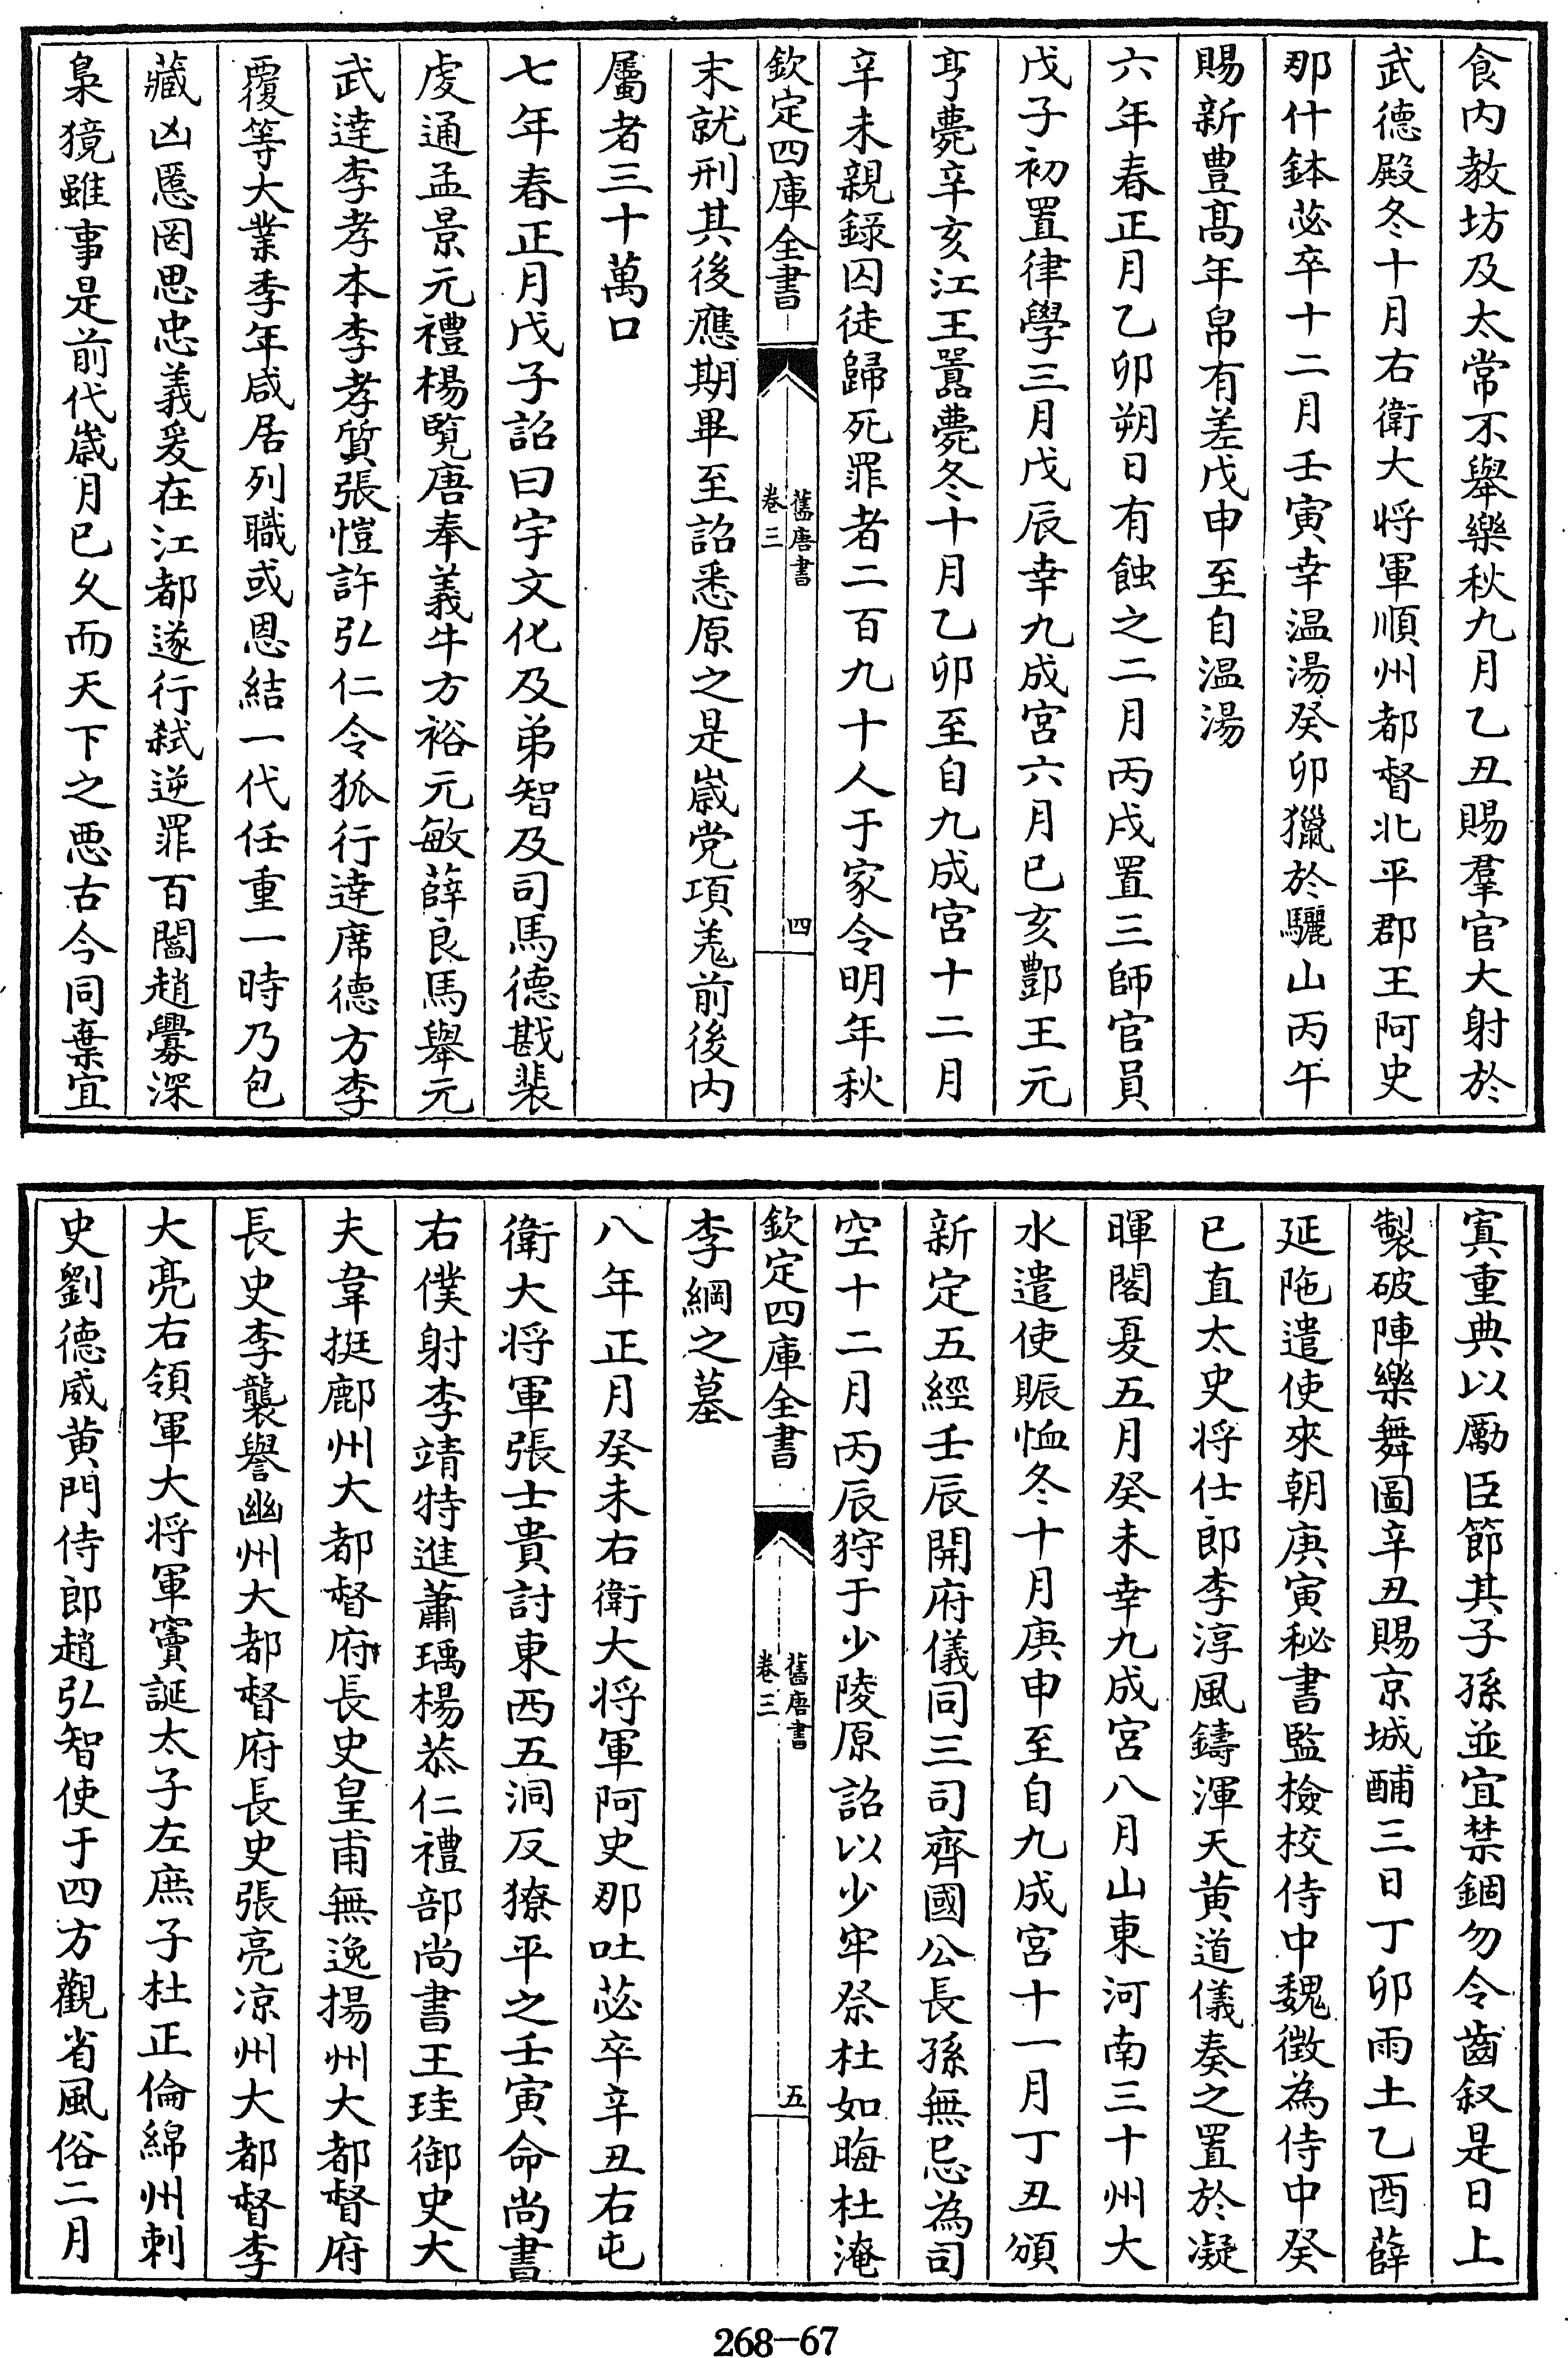 食内教坊及太常不舉樂秋九月乙丑賜羣官大射於
武德殿冬十月右衛大将軍順州都督北平郡王阿史
那什鉢苾卒十二月壬寅幸温湯癸卯獵於驪山丙午
賜新豊髙年帛有差戊申至自温湯
六年春正月乙卯朔日有蝕之二月丙戌置三師官員
戊子初置律學三月戊辰幸九成宮六月已亥酆王元
亨薨辛亥江王嚚薨冬十月乙卯至自九成宮十二月
辛未親錄囚徒歸死罪者二百九十人于家令明年秋
欽定四庫全書
舊唐書
卷三
四
末就刑其後應期畢至詔悉原之是嵗党項羌前後内
屬者三十萬口
七年春正月戊子詔曰宇文化及弟智及司馬德戡裴
虔通孟景元禮楊覽唐奉義牛方裕元敏薛良馬舉元
武達李孝本李孝質張愷許弘仁令狐行達席德方李
覆等大業季年咸居列職或恩結一代任重一時乃包
藏凶慝罔思忠義爰在江都遂行弑逆罪百閻趙釁深
梟獍雖事是前代嵗月已久而天下之惡古今同棄宜
寘重典以勵臣節其子孫並宜禁錮勿令齒叙是日上
製破陣樂舞圖辛丑賜京城酺三日丁卯雨土乙酉薛
延陁遣使來朝庚寅秘書監檢校侍中魏徴為侍中癸
已直太史将仕郎李淳風鑄渾天黄道儀奏之置於凝
暉閣夏五月癸未幸九成宮八月山東河南三十州大
水遣使賑恤冬十月庚申至自九成宮十一月丁丑頒
新定五經壬辰開府儀同三司齊國公長孫無忌為司
空十二月丙辰狩于少陵原詔以少牢祭杜如晦杜淹
欽定四庫全書
舊唐書
卷三
五
李綱之墓
八年正月癸未右衛大将軍阿史那吐苾卒辛丑右屯
衛大将軍張士貴討東西五洞反獠平之壬寅命尚書
右僕射李靖特進蕭瑀楊恭仁禮部尚書王珪御史大
夫韋挺鄜州大都督府長史皇甫無逸揚州大都督府
長史李襲譽幽州大都督府長史張亮凉州大都督李
大亮右領軍大将軍竇誕太子左庶子杜正倫綿州刺
史劉德威黄門侍郎趙弘智使于四方觀省風俗二月
268-67